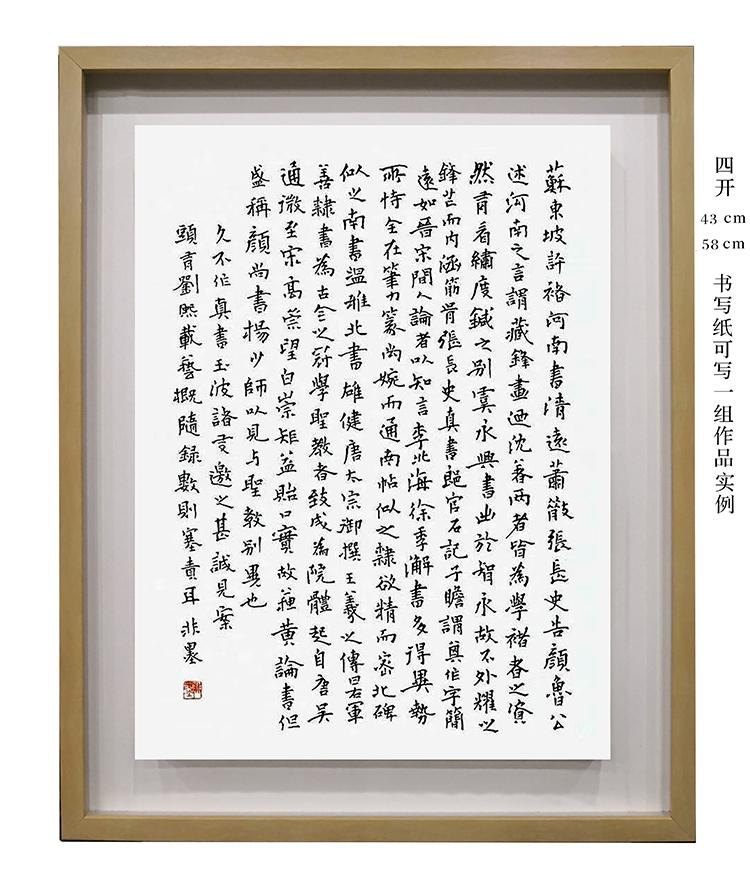 蘇東坡評褚河南書清遠蕭散張長史告顏魯公
述河南之言謂藏鋒畫迺沈著兩者皆為學褚者之資
然有看繡度鍼之別虞永興書出於智永故不外耀以
鋒芒而內涵筋骨張長史真書郎官石記子瞻謂真作字簡
遠如晉宋間人論者以知言李北海徐季澥書多得異勢
所恃全在筆力篆尚婉而通南帖似之隸欲精而密北碑
似之南書溫雅北書雄健唐太宗御撰王羲之傳曰右軍
善隸書為古今之冠學聖教者致成為院體起自唐吳
通微至宋高崇望白崇矩益貽口實故蘇黃論書但
盛稱顏尚書楊少師以見与聖教別異也
久不作真書玉波邀之甚誠見案
頭有劉熙載藝概隨錄數則塞責耳 非墨
四开
43 cm
58 cm
书写纸可写一组作品实例